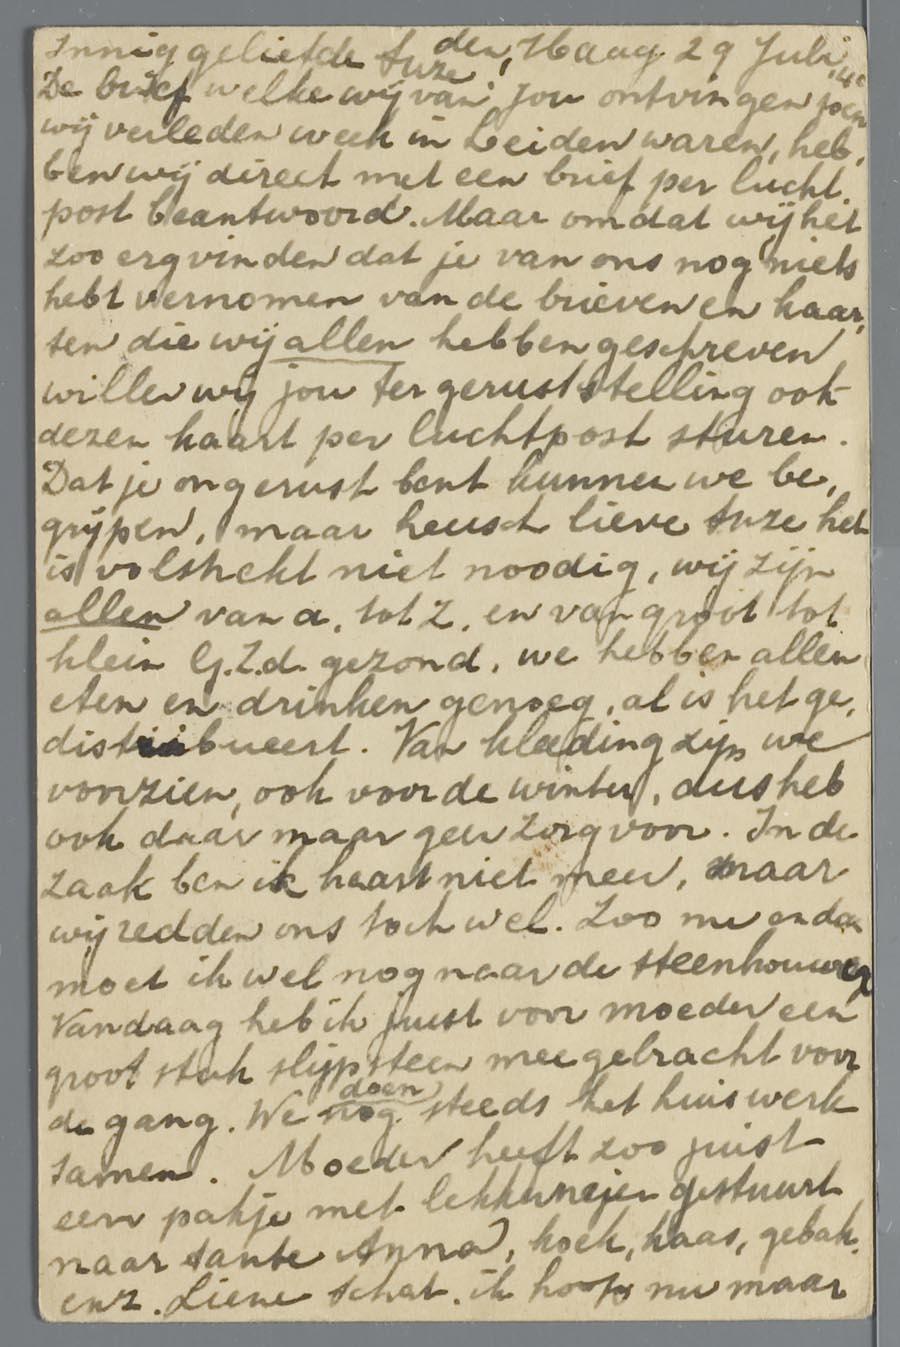 Innig geliefde Suze, den Haag 29 Juli '42
De brief welke wij van jou ontvingen toen
wij verleden week in Leiden waren, heb,
ben wij direct met een brief per lucht.
post beantwoord. Maar omdat wij het
zoo erg vinden dat je van ons nog niets
hebt vernomen van de brieven en kaar,
ten die wij allen hebben geschreven
willen wij jou ter geruststelling ook
dezen kaart per luchtpost sturen.
Dat je ongerust bent kunnen we be,
grijpen, maar heusch lieve Suze het
is volstrekt niet noodig, wij zijn
allen van a. tot Z. en van groot tot
klein G.Z.d. gezond. we hebben allen
eten en drinken genoeg, al is het ge,
distribueert. Van kleeding zijn we
voorzien, ook voor de winter, dus heb
ook daar maar geen zorg voor. In de
zaak ben ik haast niet meer, maar
wij redden ons toch wel. Zoo nu en dan
moet ik wel nog naar de steenhouwer
Vandaag heb ik juist voor moeder een
groot stuk slijpsteen meegebracht voor
de gang. We doen nog steeds het huiswerk
samen. Moeder heeft zoo juist
een pakje met lekkernijen gestuurt
naar tante Anna, koek, kaas, gebak.
enz. Lieve schat. ik hoop nu maar